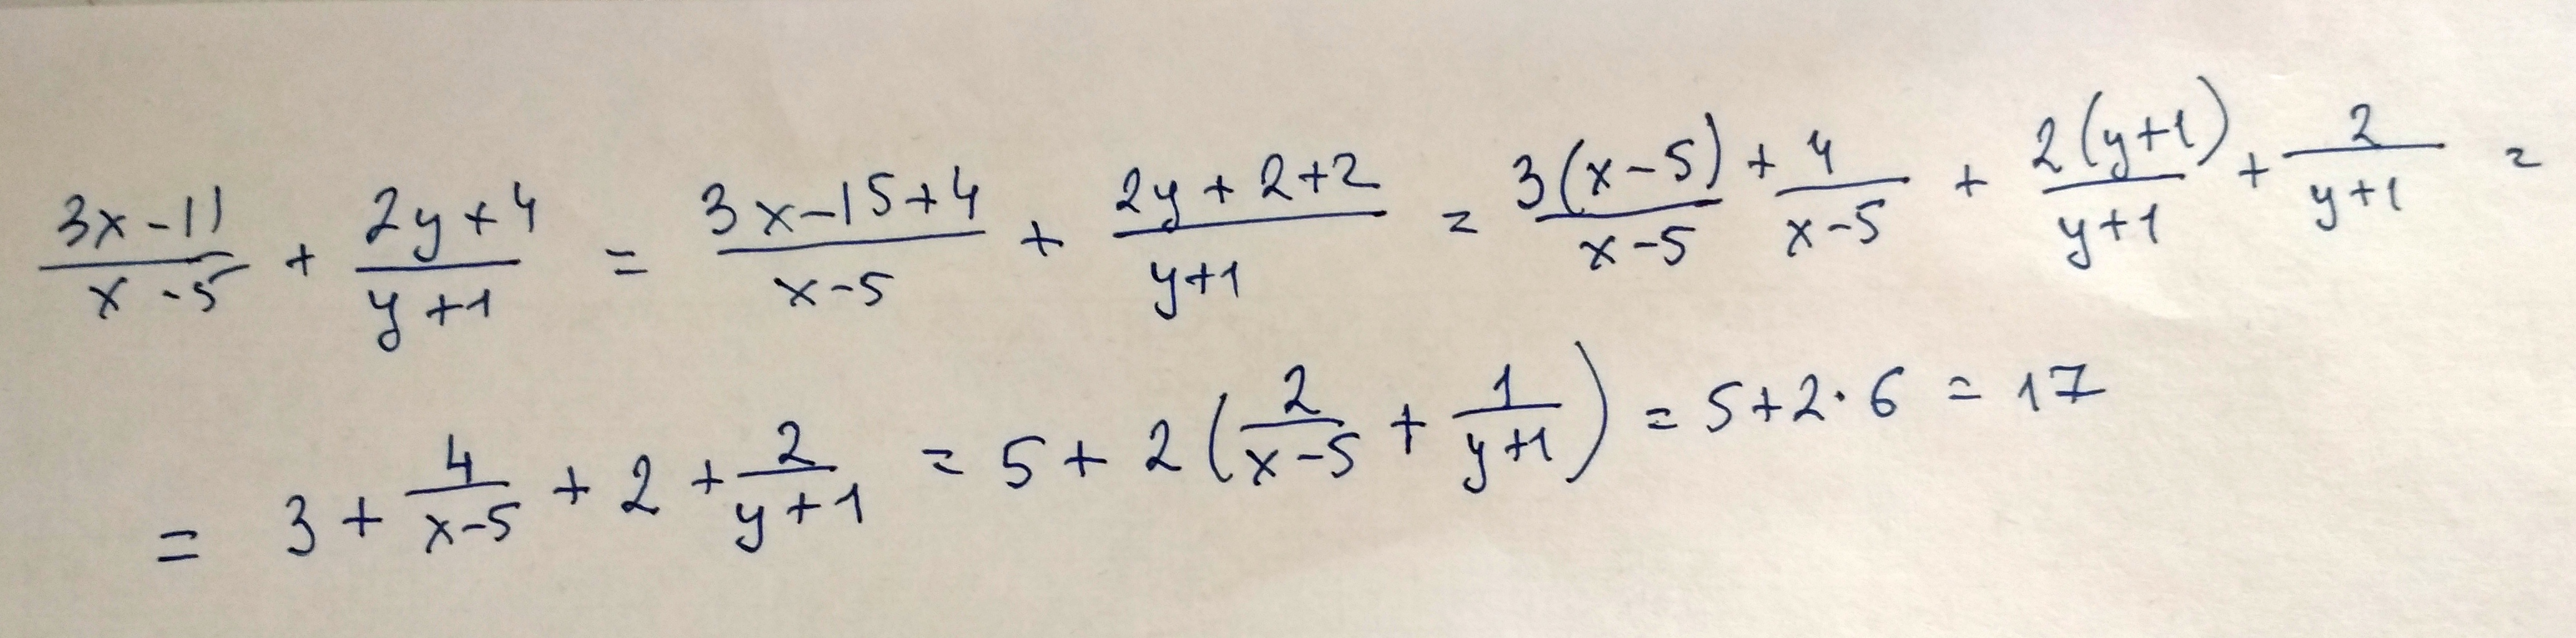 (3x-11)/(x-5) + (2y+4)/(y+1) = (3x-15+4)/(x-5) + (2y+2+2)/(y+1) = 3(x-5)/(x-5) + 4/(x-5) + 2(y+1)/(y+1) + 2/(y+1) =
= 3 + 4/(x-5) + 2 + 2/(y+1) = 5 + 2(2/(x-5) + 1/(y+1)) = 5+2·6 = 17